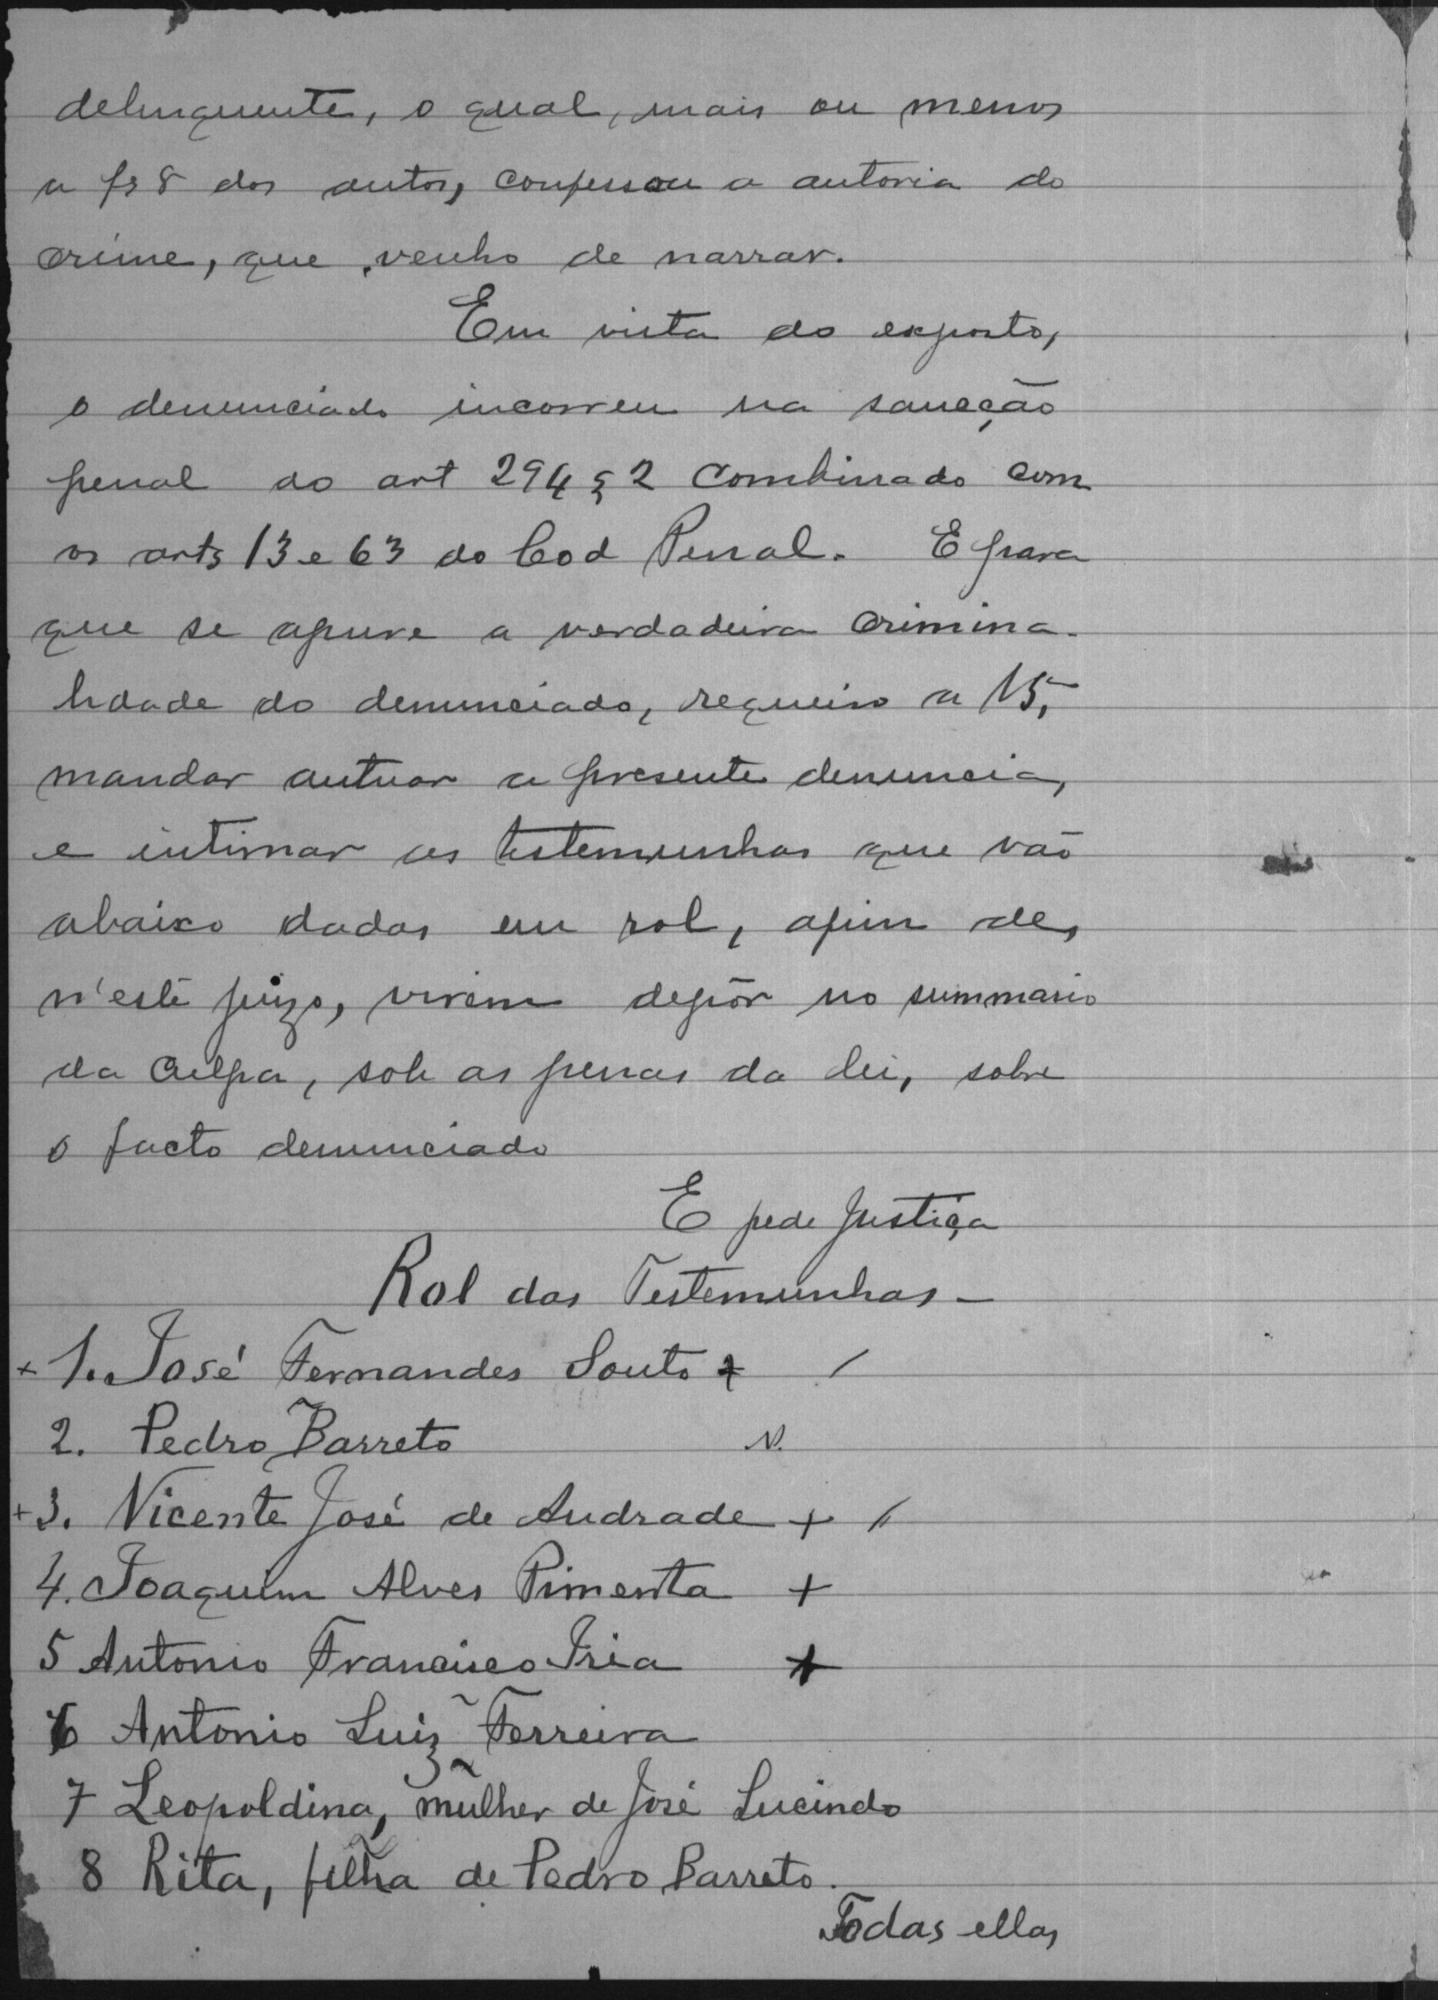 delinquente, o qual, mais ou menos
a fs 8 dos autos, confessou a autoria do
crime, que venho de narrar.
Em vista do exposto,
o denunciado incorreu na sancção
penal do art 294 § 2 combinado com
os arts 13 e 63 do Cod Penal. E para
que se apure a verdadeira crimina-
lidade do denunciado, requeiro a VS,
mandar autuar a presente denuncia,
e intimar as testemunhas que vão
abaixo dadas em rol, afim de,
n'este juizo, virem depôr no summario
da culpa, sob as penas da lei, sobre
o facto denunciado
E pede Justiça
Rol das Testemunhas -
+ 1. José Fernandes Souto + /
2. Pedro Barreto N.
+ 3. Vicente José de Andrade + //
4. Joaquim Alves Pimenta +
5 Antonio Francisco Iria +
6 Antonio Luiz Ferreira
7 Leopoldina, mulher de José Lucindo
8 Rita, filha de Pedro Barreto.
Todas ellas